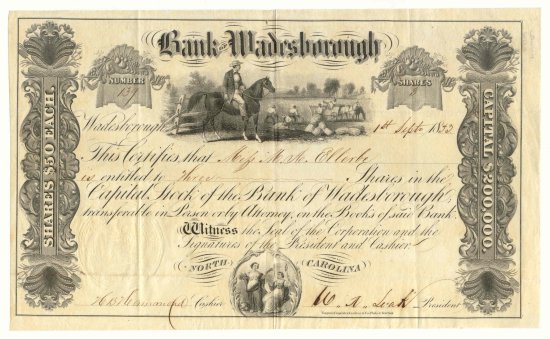 Bank of Wadesborough
NUMBER
SHARES
3
SHARES $50 EACH.
CAPITAL $200,000.
Wadesborough 1st Septr 18
This Certifies that Miss M. A. Ellerbe
is entitled to three Shares in the
Capital Stock of the Bank of Wadesborough
transferable in Person or by Attorney, on the Books of said Bank.
Witness the Seal of the Corporation and the
Signatures of the President and Cashier.
NORTH CAROLINA
H B Hammond Cashier
W. R. Leak President